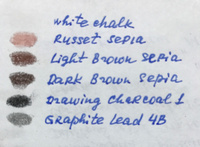 white chalk
Russet Sepia
Light Brown Sepia
Dark Brown Sepia
Drawing Charcoal 1
Graphite Lead 4B